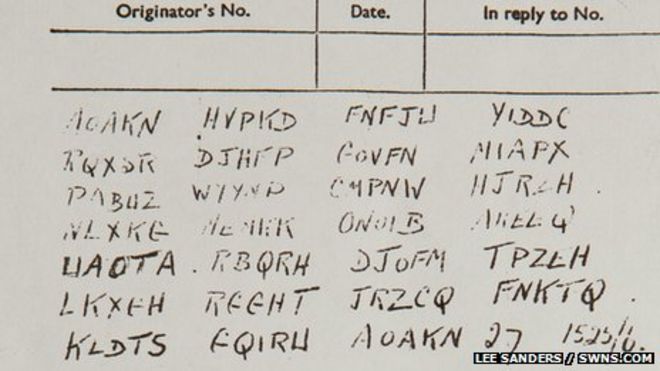 Originator's No. Date. In reply to No.
AOAKN HVPKD FNFJU YIDDC
RQXSR DJHFP GOVFN MIAPX
PABUZ WYYNP CMPNW HJRZH
NLXKG MEMKK ONOIB AKEEQ
UAOTA RBQRH DJOFM TPZEH
LKXGH RGGHT JRZCQ FNKTQ
KLDTS GQIRU AOAKN 27 1525/6.
LEE SANDERS / SWNS.COM